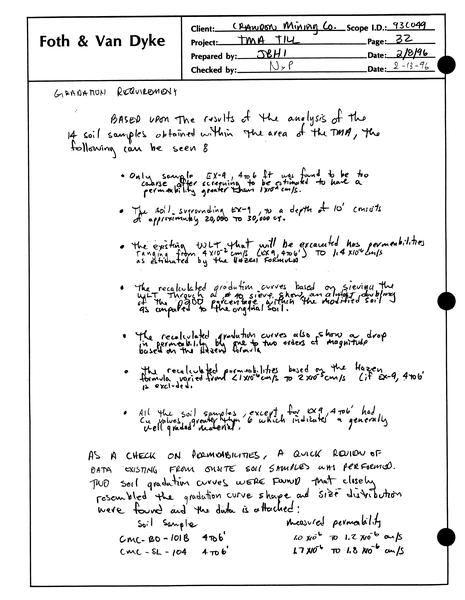 Foth & Van Dyke
Client: CRANDON MINING CO. Scope I.D.: 93C049
Project: TMA TILL Page: 32
Prepared by: JBH1 Date: 2/8/96
Checked by: NxP Date: 2-13-96
GRADATION REQUIREMENT
BASED UPON the results of the analysis of the
14 soil samples obtained within the area of the TMA, the
following can be seen:
• Only sample EX-9, 4 to 6 ft was found to be too
coarse after screening to be estimated to have a
permeability greater than cm/s.
• The soil surrounding EX-9, to a depth of 10' consists
of approximately 20,000 to 30,000 cy.
• The existing WLT that will be excavated has permeabilities
ranging from cm/s (EX9, 4 to 6') TO cm/s
as estimated by the HAZEN FORMULA
• The recalculated gradation curves based on sieving the
WLT through a #10 sieve show an almost doubling
of the P200 percentage within the modified soil
as compared to the original soil.
• The recalculated gradation curves also show a drop
in permeability by one to two orders of magnitude
based on the Hazen formula
• The recalculated permeabilities based on the Hazen
formula varied from cm/s to cm/s (if EX-9, 4 to 6'
is excluded.
• All the soil samples, except for EX9, 4 to 6' had
Cu values greater than 6 which indicates a generally
well graded material.
AS A CHECK ON PERMEABILITIES, A QUICK REVIEW OF
DATA EXISTING FROM ONSITE SOIL SAMPLES WAS PERFORMED.
TWO soil gradation curves WERE FOUND that closely
resembled the gradation curve shape and size distribution
were found and the data is attached:
Soil Sample measured permeability
CMC-BO-101B 4 to 6' 1.0 x10⁻⁶ TO 1.2 x10⁻⁶ cm/s
CMC-SL-104 4 to 6' 1.7x10⁻⁶ to 1.8 x10⁻⁶ cm/s